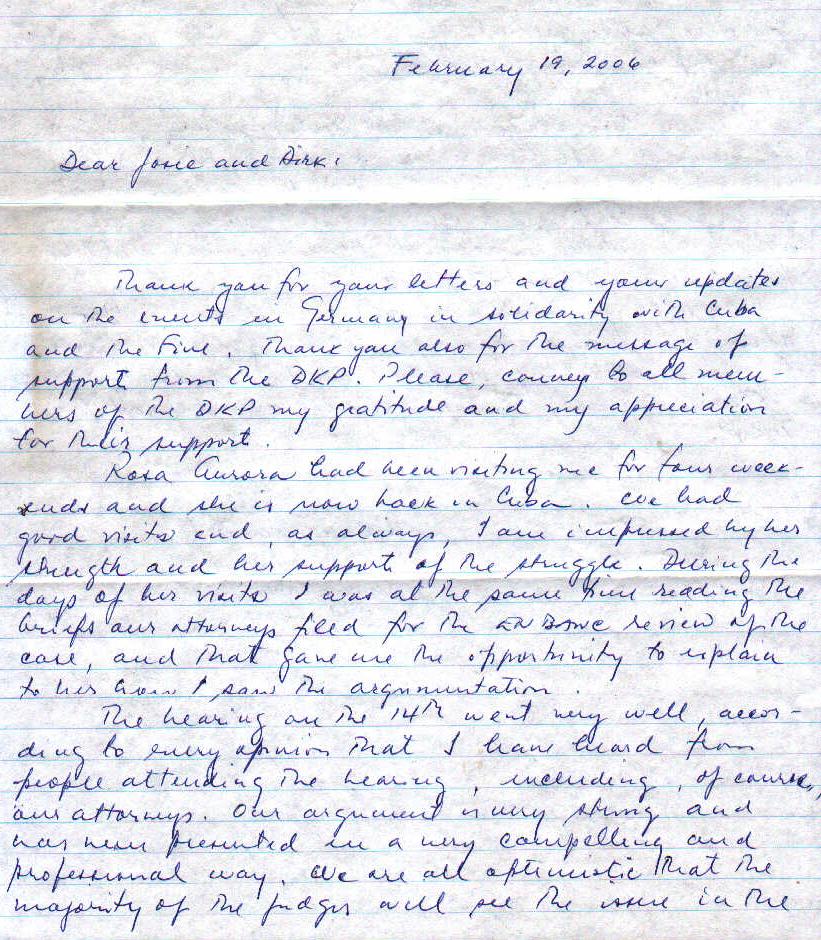 February 19, 2006
Dear Josie and Dirk:
Thank you for your letters and your updates
on the events in Germany in solidarity with Cuba
and the Five. Thank you also for the message of
support from the DKP. Please, convey to all mem-
bers of the DKP my gratitude and my appreciation
for their support.
Rosa Aurora had been visiting me for four week-
ends and she is now back in Cuba. We had
good visits and, as always, I am impressed by her
strength and her support of the struggle. During the
days of her visits I was at the same time reading the
briefs our attorneys filed for the EN BANC review of the
case, and that gave me the opportunity to explain
to her how I saw the argumentation.
The hearing on the 14th went very well, accor-
ding to every opinion that I have heard from
people attending the hearing, including, of course,
our attorneys. Our argument is very strong and
has been presented in a very compelling and
professional way. We are all optimistic that the
majority of the judges will see the issue in the